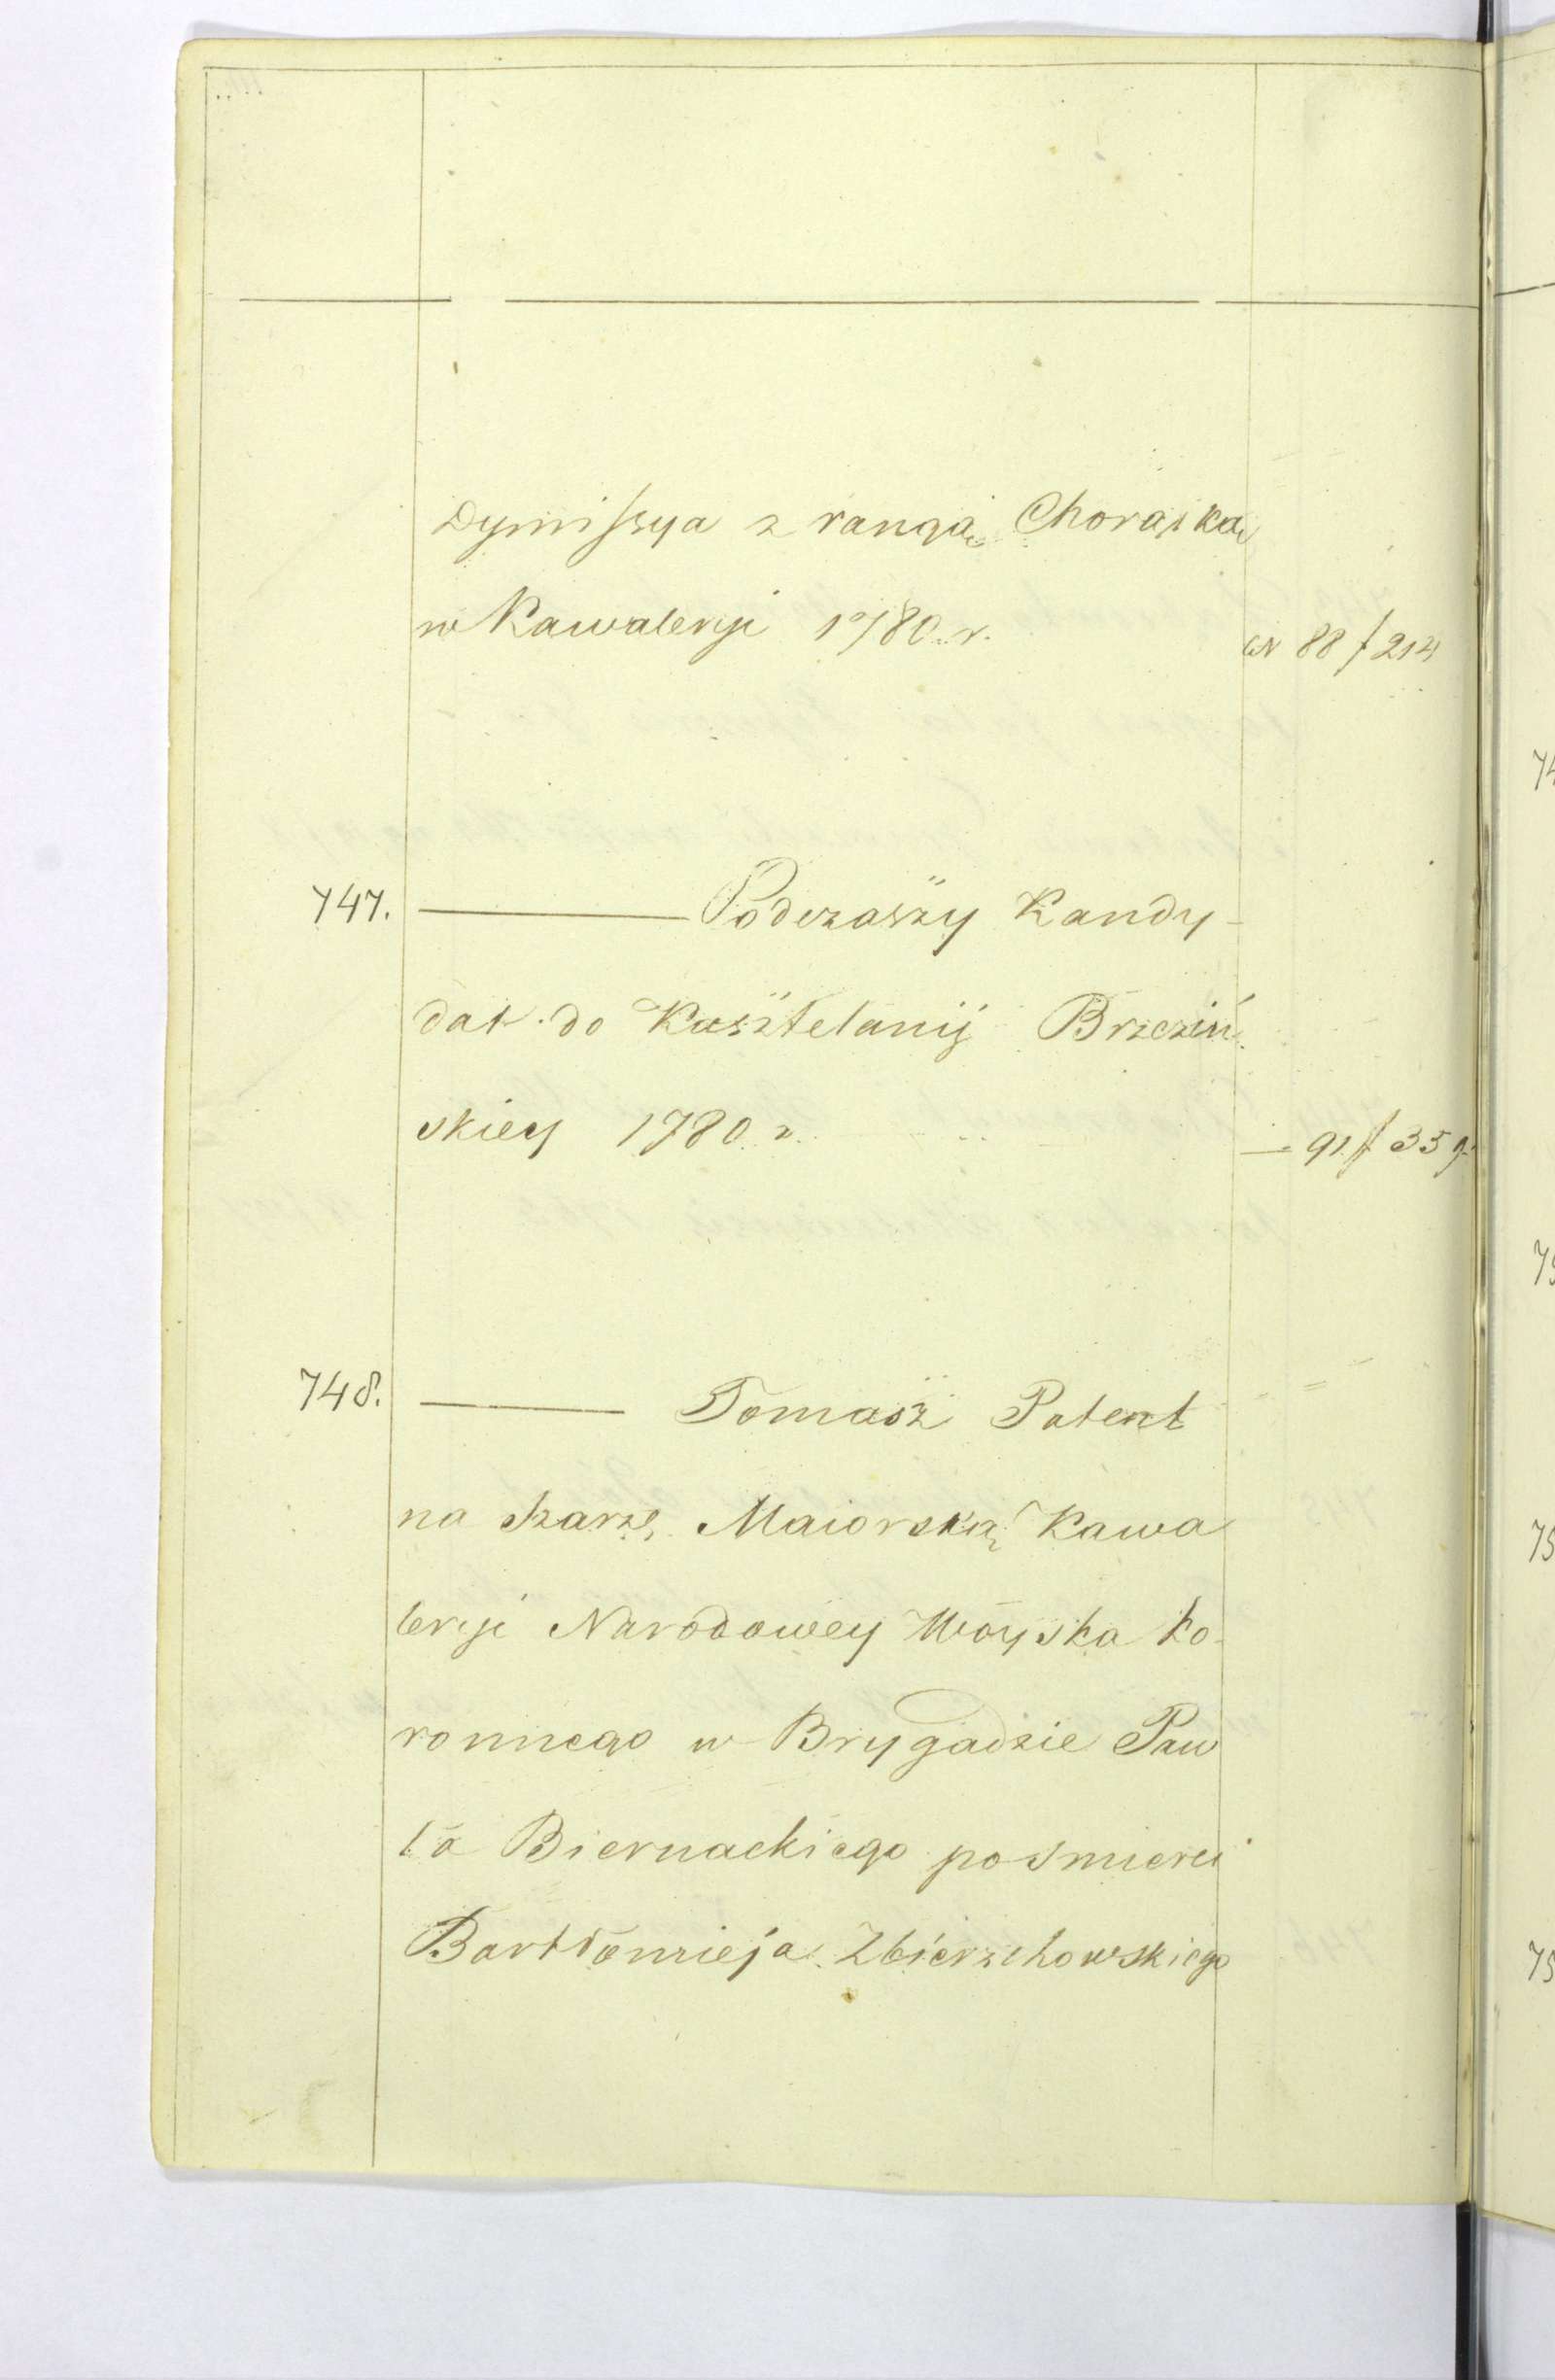 Dymissya z rangą Chorążką
w Kawaleryi 1780. r.
N 88 f 214
747. ——— Podczaszy Kandy-
dat do Kasztelanij Brzeziń
skiey 1780 r.
— 91 f 359
748. ——— Tomasz Patent
na szarzę Maiorską Kawa
leryi Narodowey Woyska Ko-
ronnego w Brygadzie Paw
ła Biernackiego po smierci
Bartłomieja Zbierzchowskiego